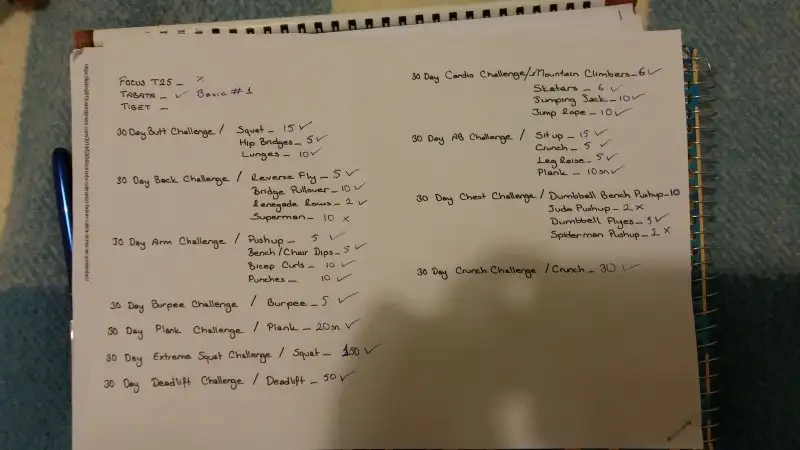 Focus T25 _ x
TABATA _ ✓ Basic #1
TIBET _
30 Day Butt Challenge / Squat _ 15 ✓
Hip Bridges _ 5 ✓
Lunges _ 10 ✓
30 Day Back Challenge / Reverse Fly _ 5 ✓
Bridge Pullover _ 10 ✓
Renegade Rows _ 2 ✓
Superman _ 10 x
30 Day Arm Challenge / Pushup _ 5 ✓
Bench/Chair Dips _ 5 ✓
Bicep Curls _ 10 ✓
Punches _ 10 ✓
30 Day Burpee Challenge / Burpee _ 5 ✓
30 Day Plank Challenge / Plank _ 20sn ✓
30 Day Extreme Squat Challenge / Squat _ 150 ✓
30 Day Deadlift Challenge / Deadlift _ 50 ✓
30 Day Cardio Challenge / Mountain Climbers _ 6 ✓
Skaters _ 6 ✓
Jumping Jack _ 10 ✓
Jump Rope _ 10 ✓
30 Day AB Challenge / Situp _ 15 ✓
Crunch _ 5 ✓
Leg Raise _ 5 ✓
Plank _ 10sn ✓
30 Day Chest Challenge / Dumbbell Bench Pushup _ 10
Judo Pushup _ 2 x
Dumbbell Flyes _ 5 ✓
Spiderman Pushup _ 2 x
30 Day Crunch Challenge / Crunch _ 30 ✓